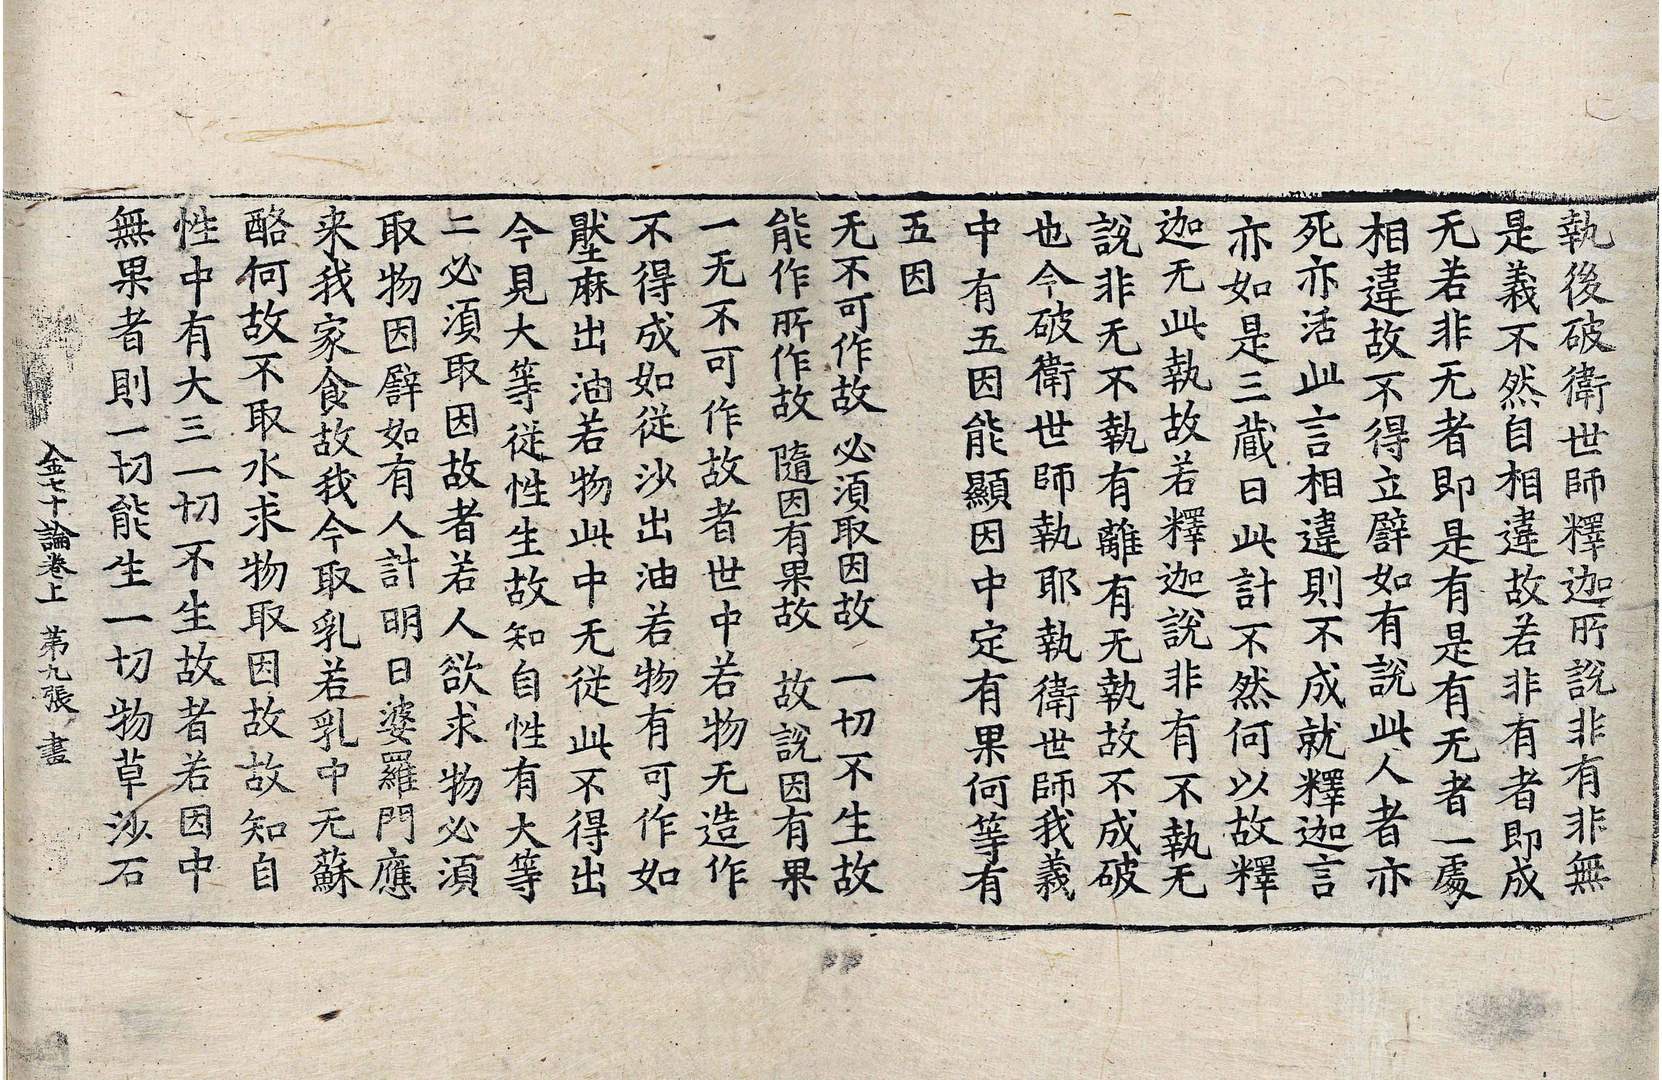 執後破衛世師釋迦所說非有非無
是義不然自相違故若非有者即成
无若非无者即是有是有无者一處
相違故不得立譬如有說此人者亦
死亦活此言相違則不成就釋迦言
亦如是三藏曰此計不然何以故釋
迦无此執故若釋迦說非有不執无
說非无不執有離有无執故不成破
也今破衛世師執耶執衛世師我義
中有五因能顯因中定有果何等有
五因
无不可作故 必湏取因故 一切不生故
能作所作故 隨因有果故 故說因有果
一无不可作故者世中若物无造作
不得成如從沙出油若物有可作如
壓麻出油若物此中无從此不得出
今見大等從性生故知自性有大等
二必湏取因故者若人欲求物必湏
取物因譬如有人計明日婆羅門應
来我家食故我今取乳若乳中无蘇
酪何故不取水求物取因故故知自
性中有大三一切不生故者若因中
無果者則一切能生一切物草沙石
金七十論卷上 第九張 書